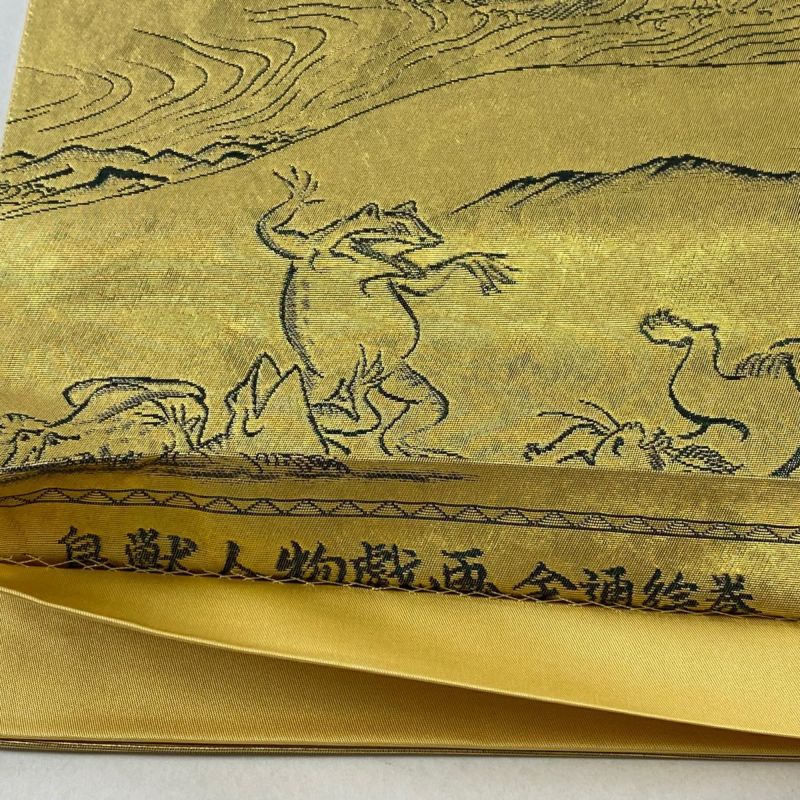 鳥獣人物戯画 全通絵巻